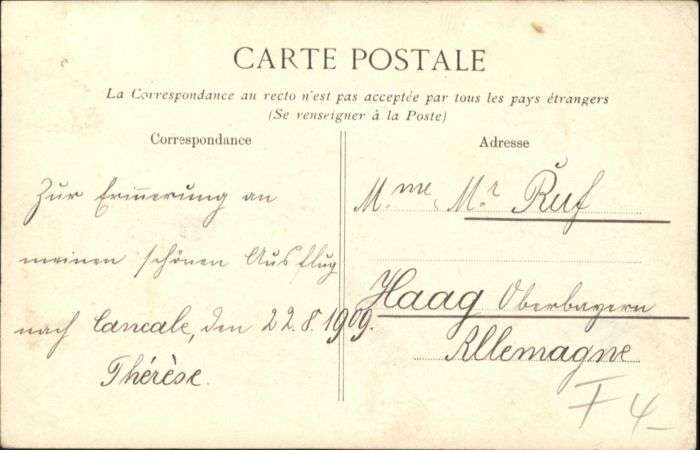 CARTE POSTALE
La Correspondance au recto n'est pas acceptée par tous les pays étrangers
(Se renseigner à la Poste)
Correspondance
Adresse
Zur Erinnerung an
meinen schönen Ausflug
nach Cancale, den 22.8.1909.
Thérèse.
M.me M.r Ruf
Haag Oberbayern
Allemagne
F 4-